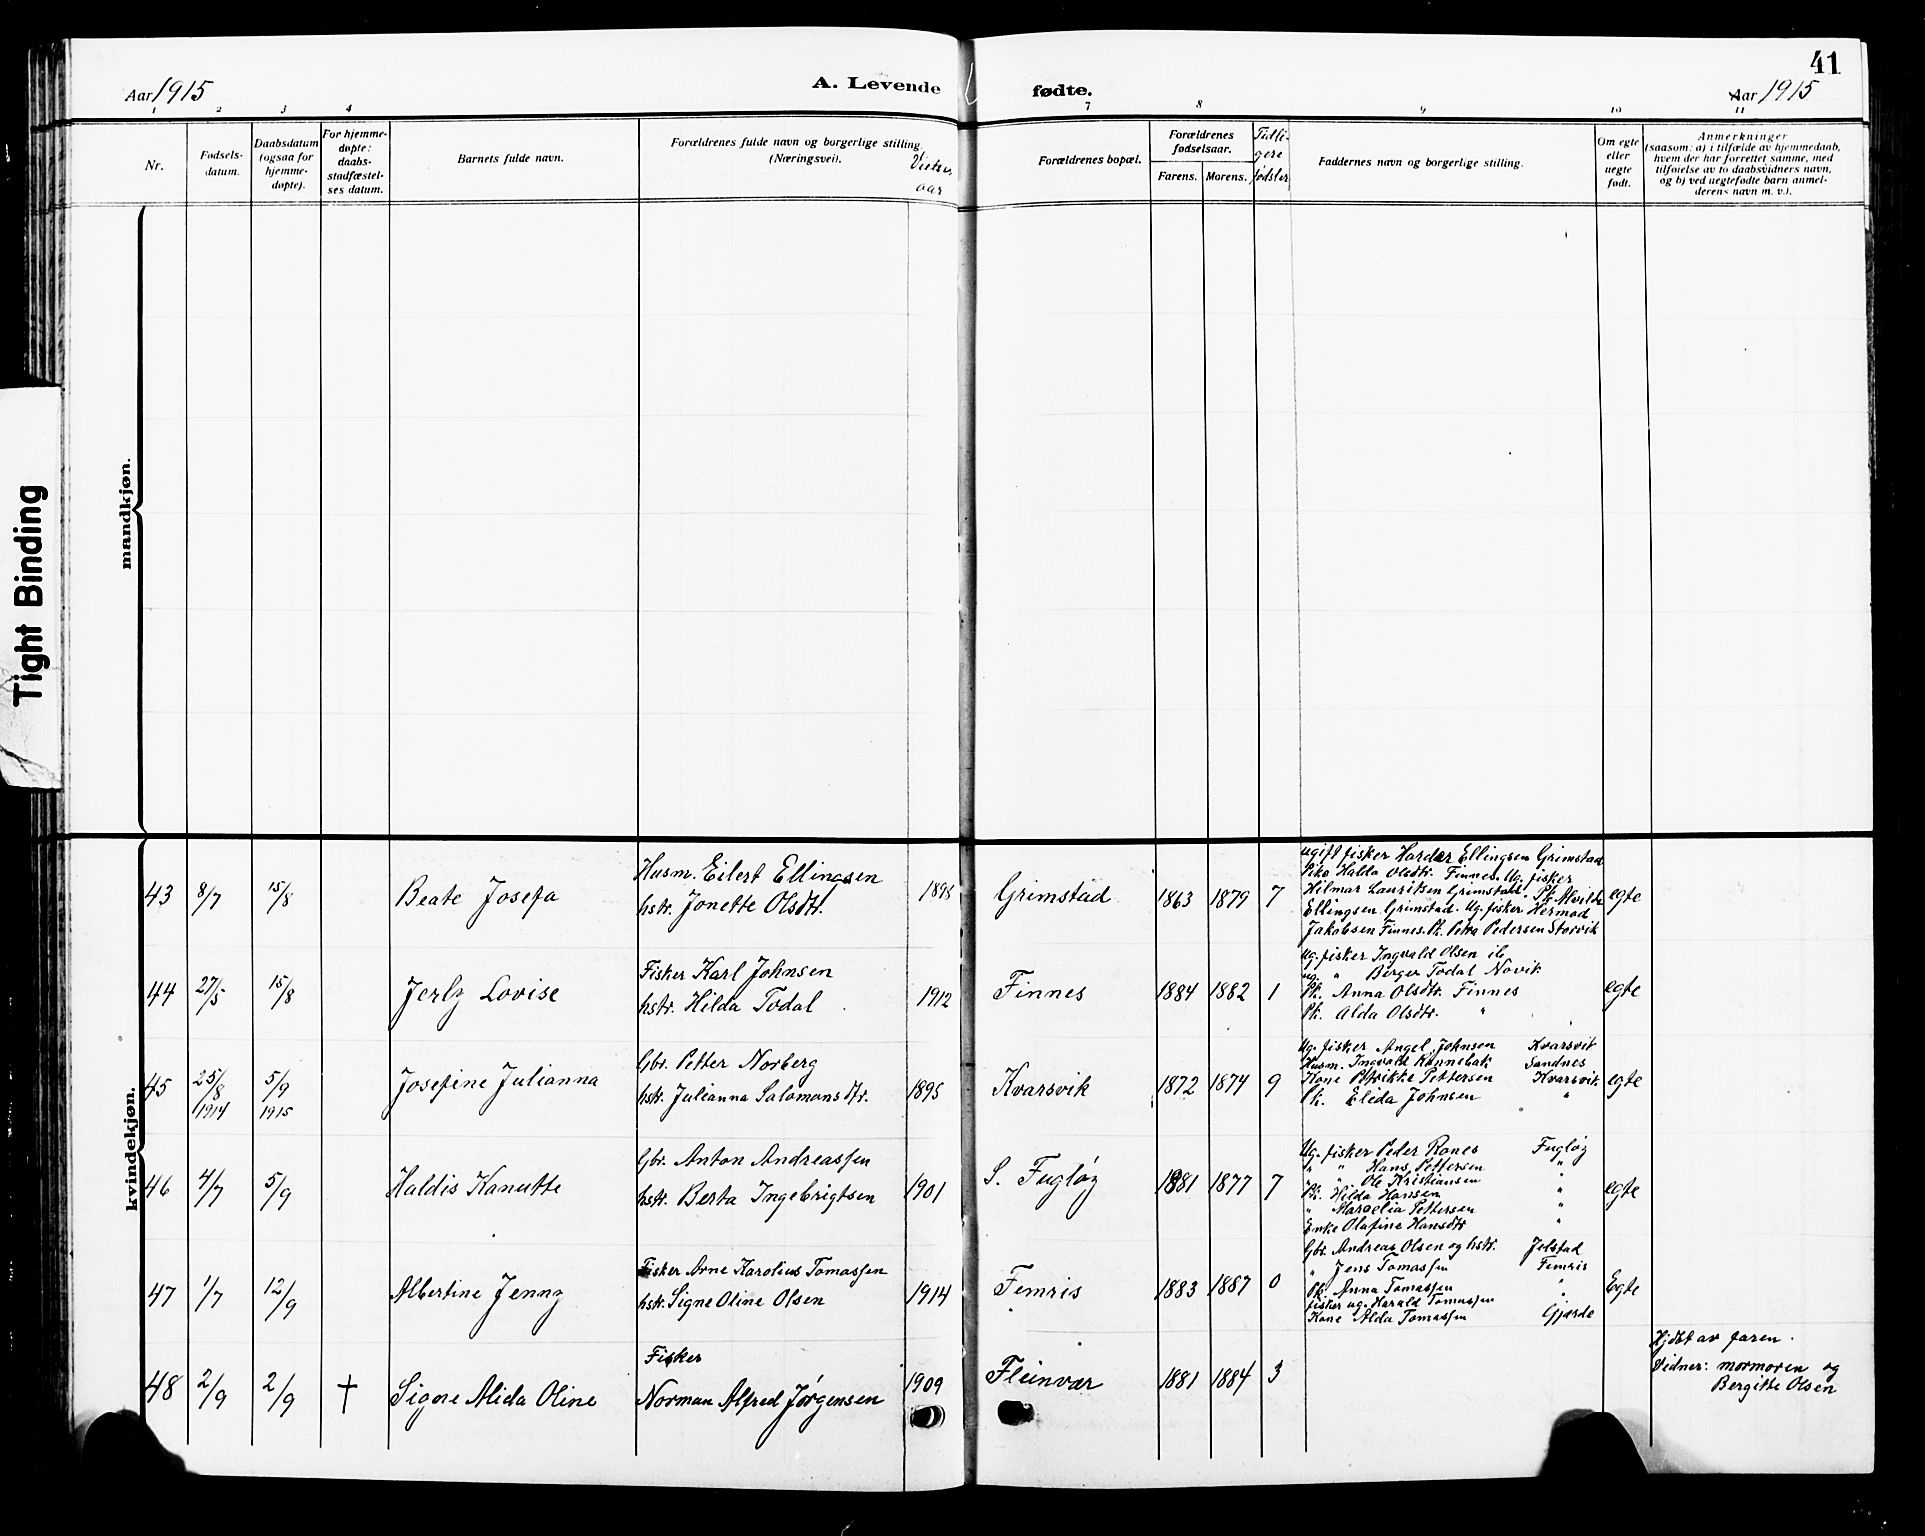 41
Aar 1915
A. Levende
fødte.
Aar 1915
1 2 3 4
7 8 9 10 11
Nr.
Fødsels-
datum.
Daabsdatum
(ogsaa for
hjemme-
døpte).
For hjemme-
døpte:
daabs-
stadfæstel-
ses datum.
Barnets fulde navn.
Forældrenes fulde navn og borgerlige stilling
(Næringsvei).
Vielses
aar
Forældrenes bopæl.
Forældrenes
fødselsaar.
Farens. Morens.
Tidli-
gere
fødsler
Faddernes navn og borgerlige stilling.
Om egte
eller
uegte
født.
Anmerkninger
(saasom: a) i tilfælde av hjemmedaab,
hvem der har forrettet samme, med
tilføielse av to daabsvidners navn,
og b) ved uegtefødte barn anmel-
derens navn m. v.).
mandkjøn.
Tight Binding
kvindekjøn.
43 8/7 15/8 Beate Josefa
Husm. Eilert Ellingsen
hstr. Jonette Olsdtr.
1898 Grimstad 1863 1879 7
ugift fisker Hardar Ellingsen Grimstad
Pike Halda Olsdtr. Finnes. Ug. fisker
Hilmar Lauritsen Grimstad. Pk. Alvilde
Ellingsen Grimstad. Ug. fisker Hermod
Jakobsen Finnes. Pk. Petra Pedersen Storvik
egte
44 27/5 15/8 Jerly Lovise
Fisker Karl Johnsen
hstr. Hilda Todal
1912 Finnes 1884 1882 1
ug. fisker Ingvald Olsen ib
ug. " Berger Todal Novik
Pk. Anna Olsdtr. Finnes
Pk. Alda Olsdtr. "
egte
45 25/8 1914 5/9 1915 Josefine Julianna
Gbr. Petter Norberg
hstr. Julianna Salomonsdtr.
1895 Kvarsvik 1872 1874 9
Ug. fisker Angel Johnsen Kvarsvik
Husm. Ingvald Sandnes
Kone Pettersen Kvarsvik
Pk. Elida Johnsen "
egte
46 4/7 5/9 Haldis Kanutte
Gbr. Anton Andreassen
hstr. Berta Ingebrigtsen
1901 S. Fugløy 1881 1877 7
Ug. fisker Peder Rones Fugløy
" " Hans Pettersen "
" " Ole Kristiansen "
Pk. Hilda Hansen "
" Marselia Pettersen "
Enke Olafine Hansdtr "
egte
47 1/7 12/9 Albertine Jenny
Fisker Arne Karolius Tomassen
hstr. Signe Oline Olsen
1914 Femris 1883 1887 0
Gbr. Andreas Olsen og hstr. Jelstad
" Jens Tomassen Femris
Pk. Anna Tomassen "
fisker ug. Harald Tomassen "
Kone Alda Tomassen Gjærde
Egte
48 2/9 2/9 † Signe Alida Oline
Fisker
Norman Alfred Jørgensen
1909 Fleinvær 1881 1884 3
Hjdbt av faren.
Vidner: mormoren og
Bergitte Olsen